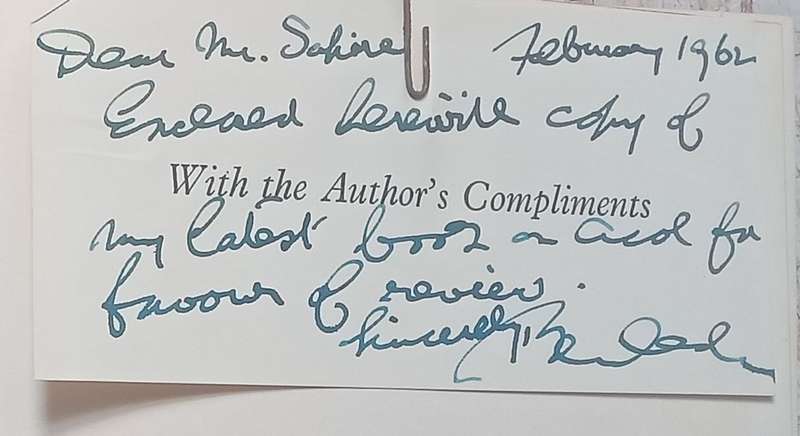 Dear Mr. Sapire February 1962
Enclosed herewith copy of
With the Author's Compliments
my latest book on Acol for
favour of review.
Sincerely,